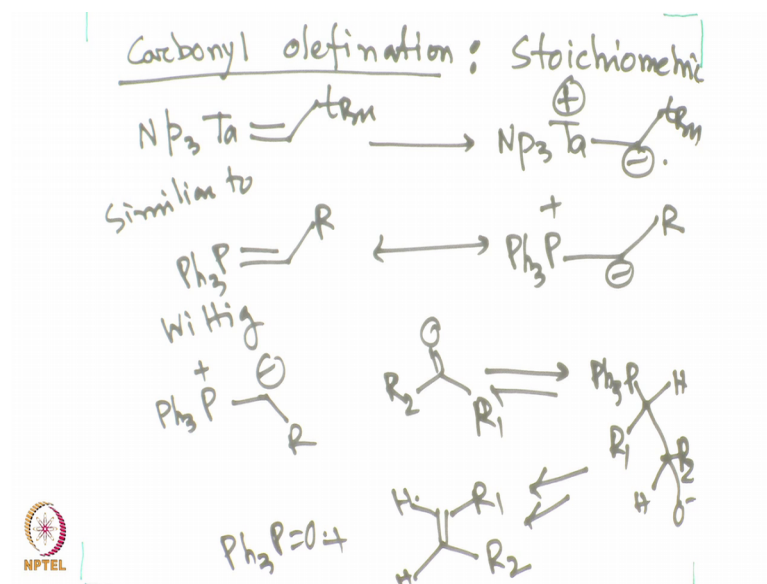 Carbonyl olefination : Stoichiometric
Np3 Ta tBu
⊕
Np3 Ta tBu
⊖
Similar to
Ph3P R
+
Ph3P R
⊖
Wittig
+
Ph3P ⊖
R
O
R2 R1
Ph3P H
R1 R2
H O-
H R1
H R2
Ph3P=O +
NPTEL